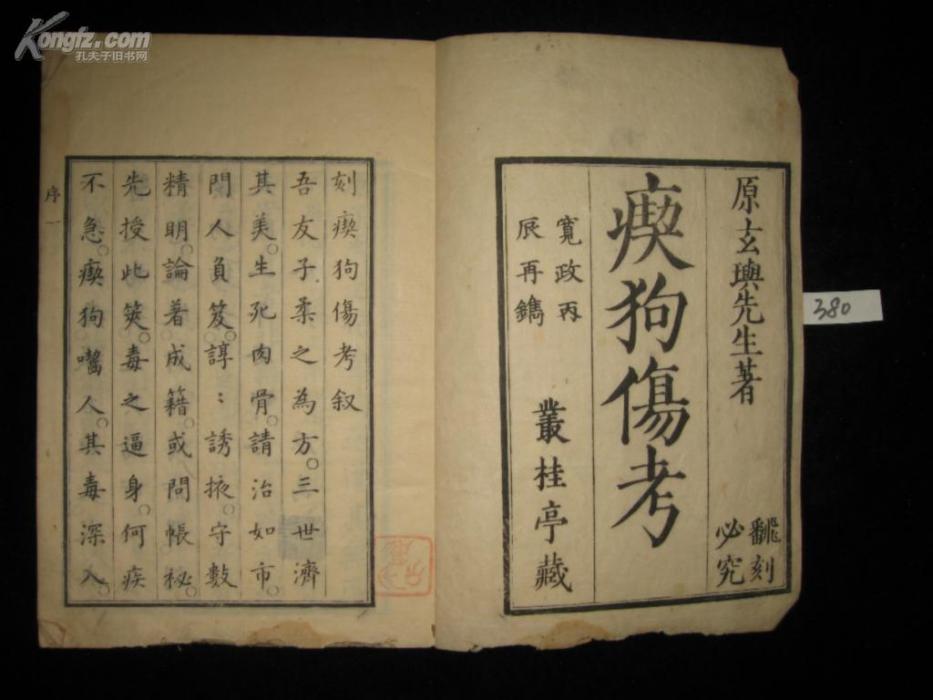 Kongfz.com
孔夫子旧书网
原玄輿先生著
飜刻
必究
瘈狗傷考
寛政丙
辰再鐫
叢桂亭藏
380
刻瘈狗傷考叙
吾友子柔之為方。三世濟
其美。生死肉骨。請治如市。
門人負笈。諄：誘掖。守數
精明。論著成籍。或問帳秘。
先授此筴。毒之逼身。何疾
不急。瘈狗囓人。其毒深入。
序 一